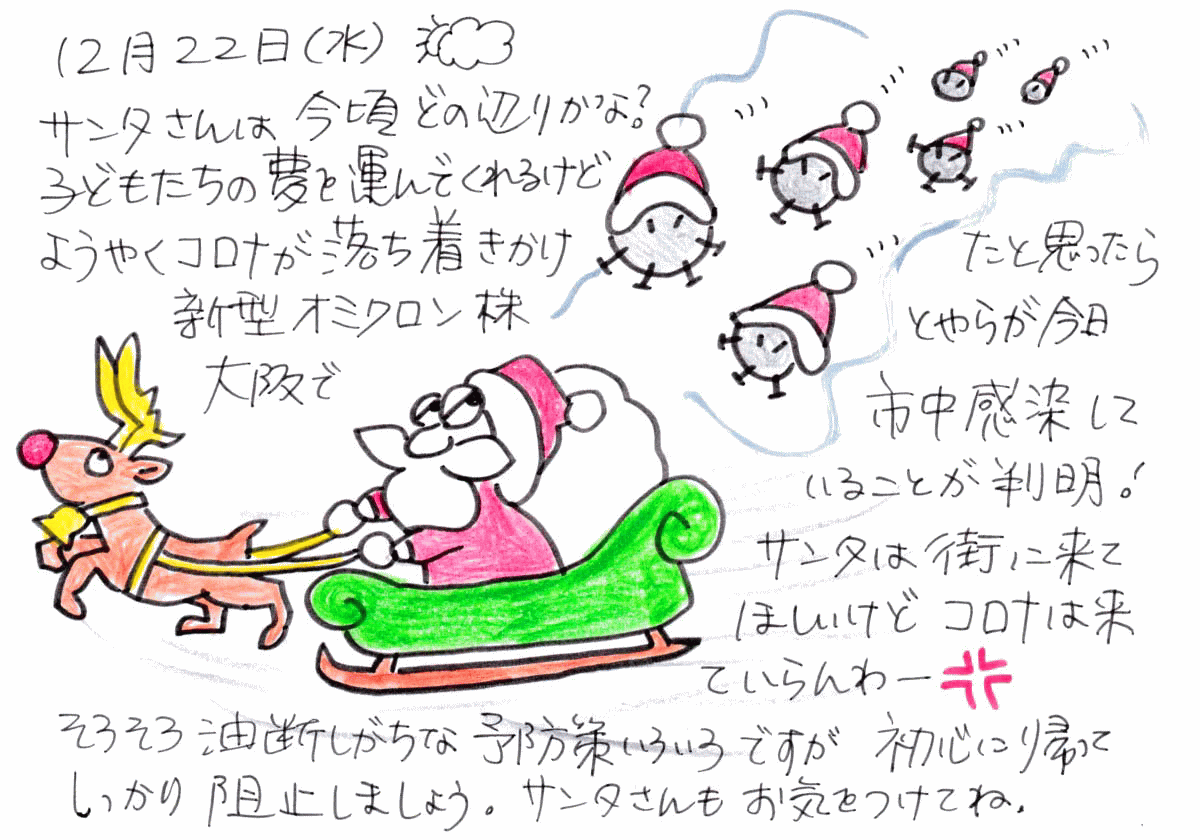 12月22日(水)
サンタさんは 今頃 どの辺りかな?
子どもたちの夢を運んでくれるけど
ようやくコロナが落ち着きかけ
たと思ったら
新型オミクロン株
とやらが今日
大阪で
市中感染して
いることが判明!
サンタは街に来て
ほしいけど コロナは来
ていらんわー
そろそろ油断しがちな 予防策いろいろですが 初心に帰って
しっかり阻止しましょう。サンタさんもお気をつけてね.